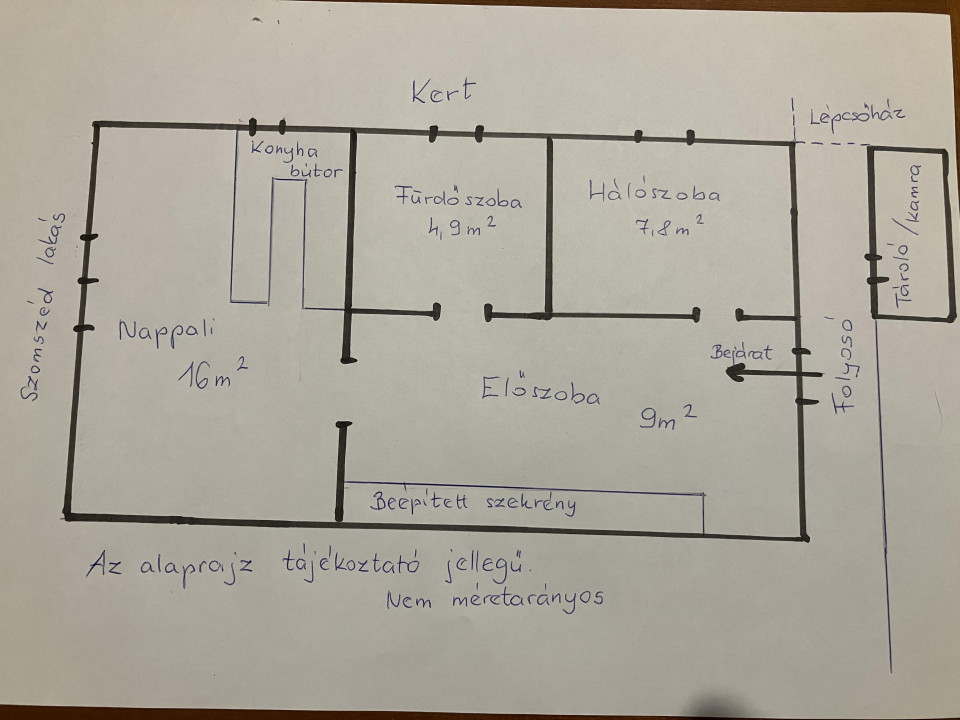 Kert
Lépcsőház
Konyha
bútor
Fürdőszoba
4,9m²
Hálószoba
7,8m²
Tároló/kamra
Szomszéd lakás
Nappali
16m²
Bejárat
Folyosó
Előszoba
9m²
Beépített szekrény
Az alaprajz tájékoztató jellegű.
Nem méretarányos